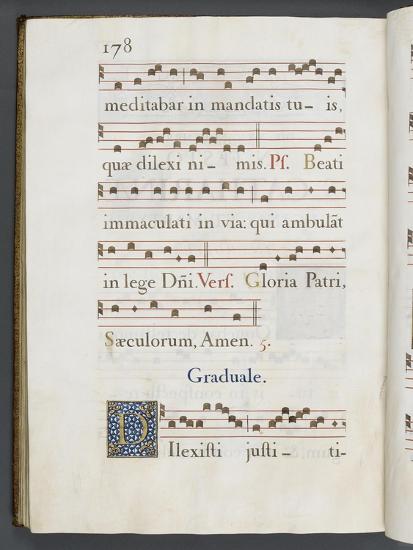 178
meditabar in mandatis tu- is,
quæ dilexi ni- mis. Ps. Beati
immaculati in via: qui ambulāt
in lege Dñi. Vers. Gloria Patri,
Sæculorum, Amen. 5.
Graduale.
DIlexiſti juſti- ti-